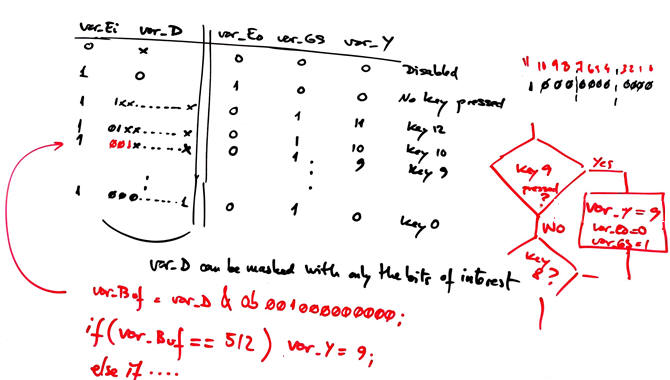 var_Ei var_D var_Eo var_GS var_Y
0 x 0 0 0 Disabled
1 0 1 0 0 No key pressed
1 1xx.......x 0 1 11 key 12
1 01xx.......x 0 1 10 key 10
1 001x.......x 0 9 key 9
1 000.......1 0 1 0 key 0
var_D can be masked with only the bits of interest
var_Buf = var_D & 0b001000000000;
if (var_Buf == 512) var_Y = 9;
else if ....
11 10 9 8 7 6 5 4 3 2 1 0
key 9
pressed
?
Yes
var_Y = 9
var_EO=0
var_GS=1
NO
key
8 ?